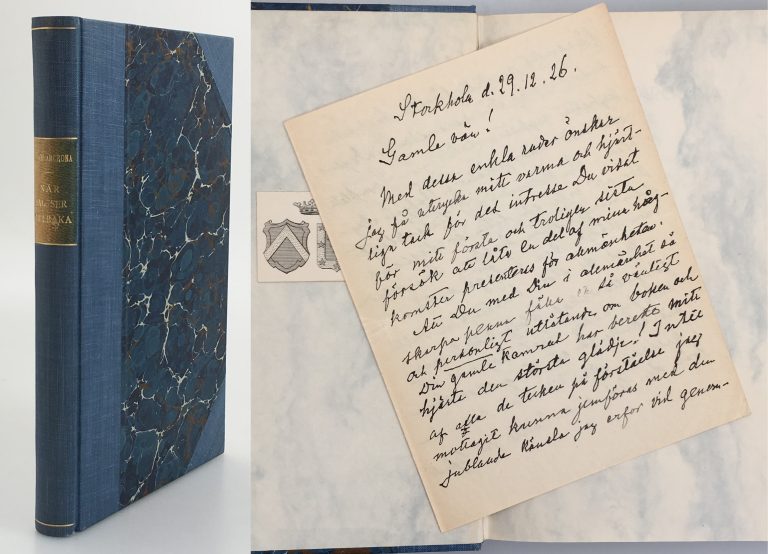 NÄR
SER
Stockholm d. 29.12.26.
Gamle vän!
Med dessa enkla rader önskar
jag få uttrycka mitt varma och hjärt-
liga tack för det intresse Du visat
för mitt första och troligen sista
försök att låta en del af mina håg-
komster presenteras för allmänheten.
Att Du med Din i allmänhet så
skarpa penna så vänligt
och personligt uttalande om boken och
Din gamle kamrat har beredt mitt
hjärta den största glädje! Intet
af alla de tecken på förståelse jag
mottagit kunna jemföras med den
jublande känsla jag erfor vid genom-